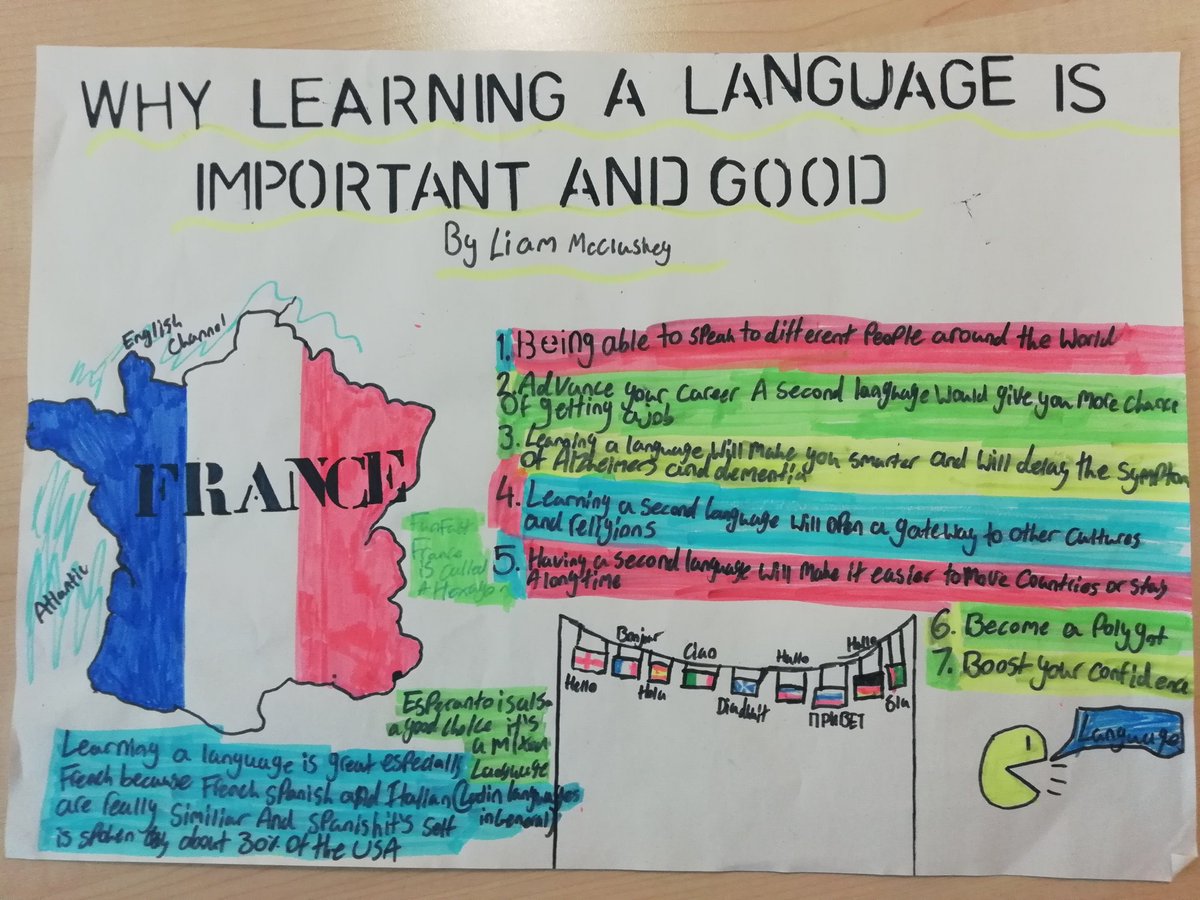 WHY LEARNING A LANGUAGE IS
IMPORTANT AND GOOD
By Liam McCluskey
English
Channel
FRANCE
Atlantic
1. Being able to speak to different People around the World
2. Advance your career A second language Would give you More chance
Of getting a job
3. Learning a language will Make you smarter and will delay the Symptom
of Alzheimers and dementia
4. Learning a second language will open a gateway to other cultures
and religions
5. Having a second language will Make it easier to Move Countries or Stay
A long time
6. Become a Polyglot
7. Boost your confidence
Fun Fact
France
is called
Hello
Bonjour
Hola
Ciao
Hallo
ПРИВЕТ
Hallo
Language
Esperanto is also
a good choice it's
a Mixed
Language
Learning a language is great especially
French because French spanish and Italian (Latin languages
in General)
are really Similiar And spanish it's self
is spoken by about 30% of the USA